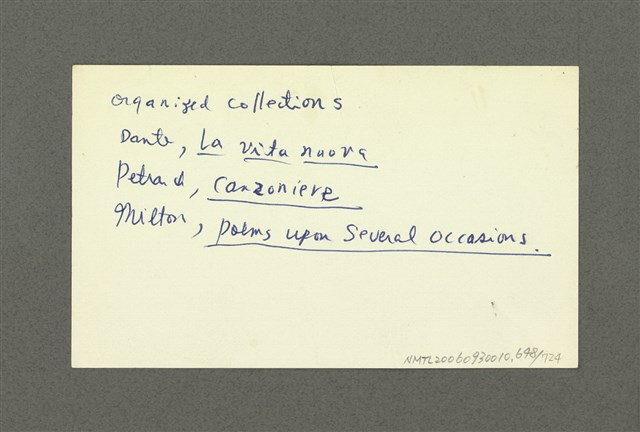 organized collections
Dante, La vita nuova
Petrarch, Canzoniere
Milton, Poems upon Several Occasions.
NMTL20060930010.698/724